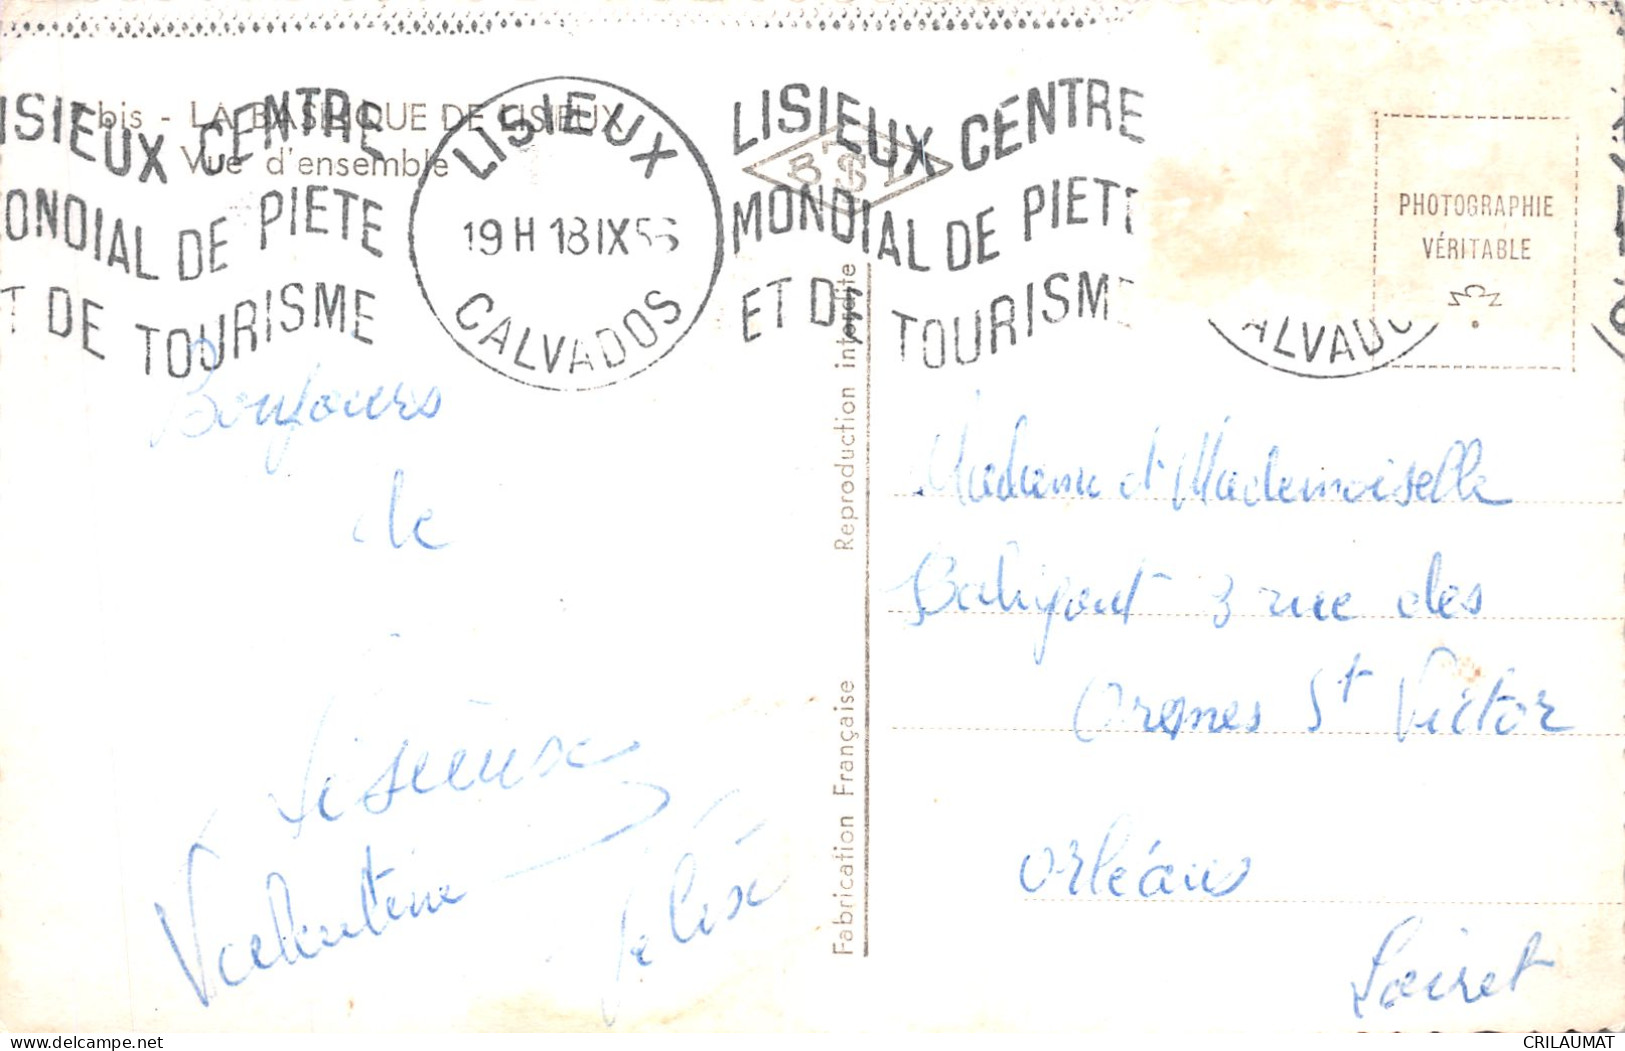 bis - LA BASILIQUE DE LISIEUX
Vue d'ensemble
ISIEUX CENTRE
ONDIAL DE PIETE
T DE TOURISME
LISIEUX
19 H 18 IX 56
CALVADOS
LISIEUX CENTRE
MONDIAL DE PIETE
ET DE TOURISME
BST
ALVADO
PHOTOGRAPHIE
VÉRITABLE
Bonjours
de
Lisieux
Valentine
Félix
Fabrication Française
Reproduction interdite
Madame et Mademoiselle
3 rue des
St Victor
Orléans
Loiret
CRILAUMAT